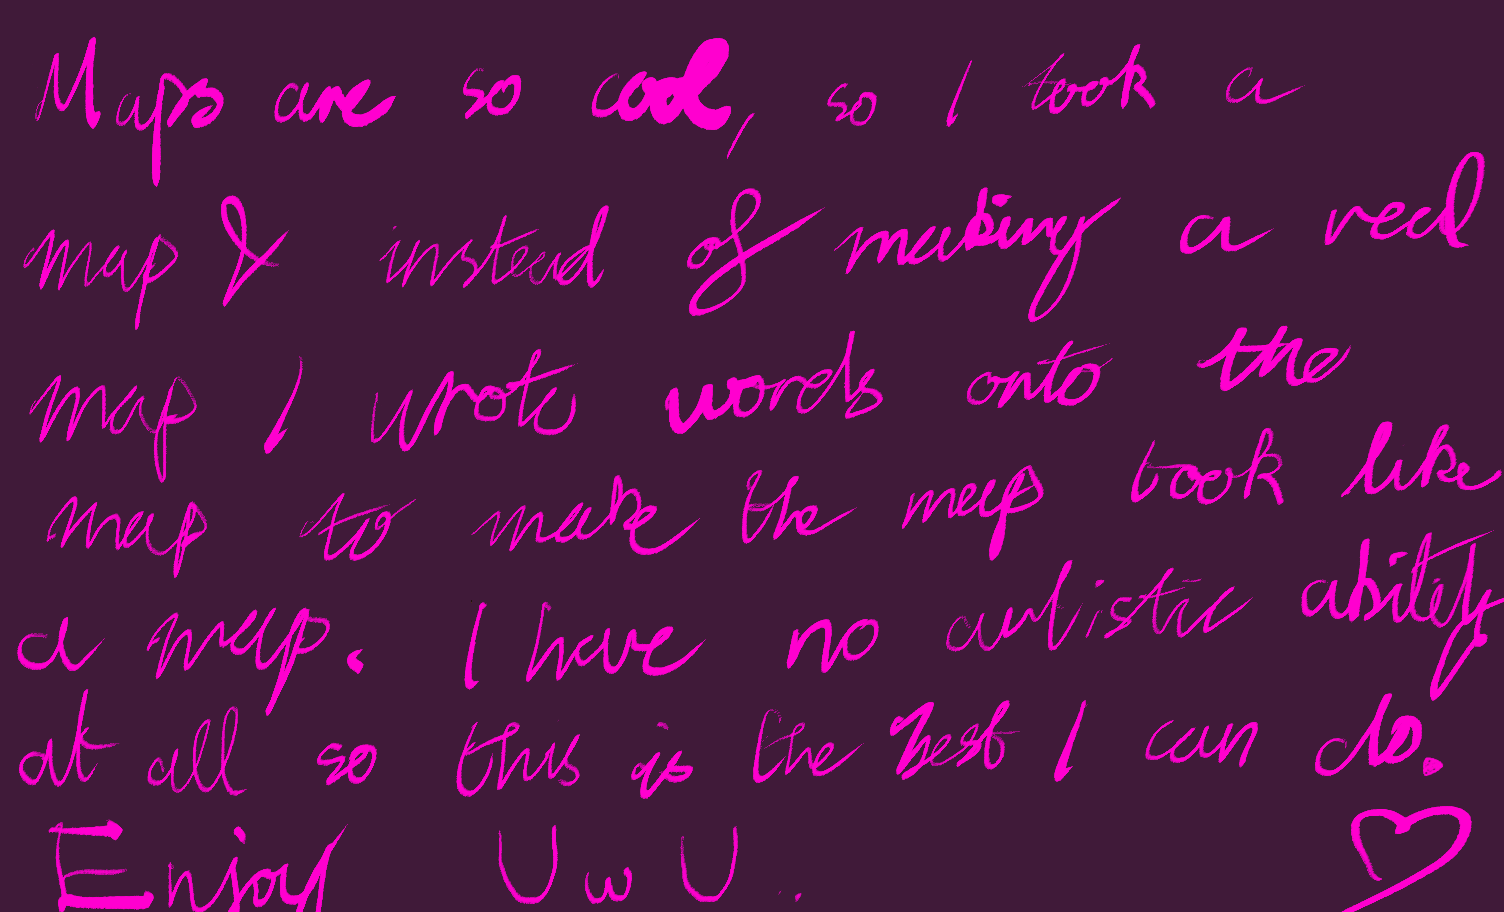 Maps are so cool, so I took a
map & instead of making a real
map I wrote words onto the
map to make the map look like
a map. I have no autistic ability
at all so this is the best I can do.
Enjoy UwU.